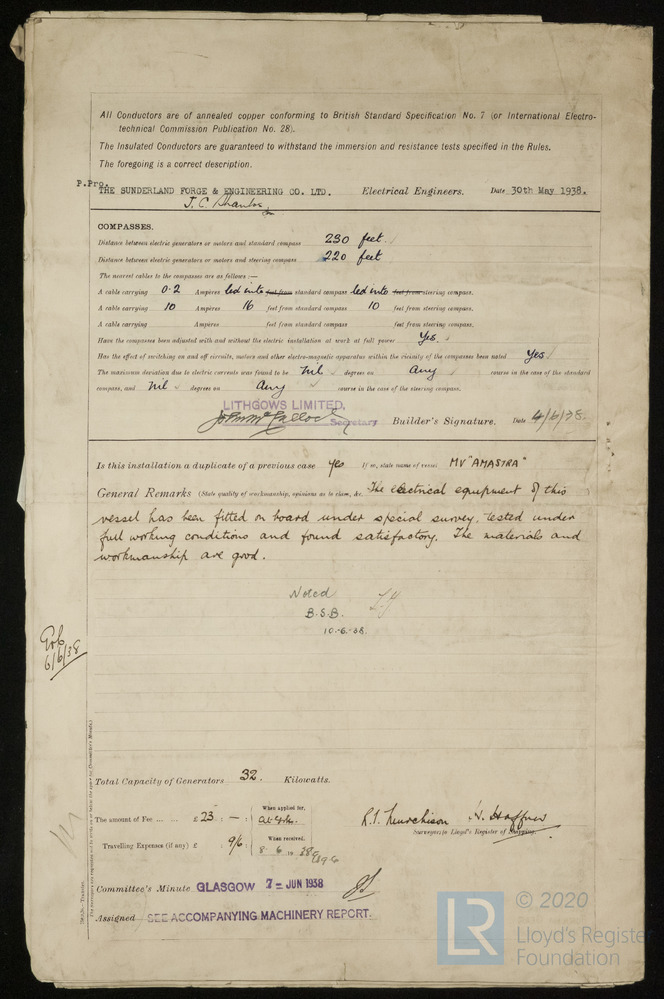 All Conductors are of annealed copper conforming to British Standard Specification No. 7 (or International Electro-
technical Commission Publication No. 28).
The Insulated Conductors are guaranteed to withstand the immersion and resistance tests specified in the Rules.
The foregoing is a correct description.
P.Pro. THE SUNDERLAND FORGE & ENGINEERING CO. LTD. Electrical Engineers. Date 30th May 1938.
J. C.
COMPASSES.
Distance between electric generators or motors and standard compass 230 feet.
Distance between electric generators or motors and steering compass 220 feet
The nearest cables to the compasses are as follows :—
A cable carrying 0·2 Amperes led into feet from standard compass led into feet from steering compass.
A cable carrying 10 Amperes 16 feet from standard compass 10 feet from steering compass.
A cable carrying Amperes feet from standard compass feet from steering compass.
Have the compasses been adjusted with and without the electric installation at work at full power Yes.
Has the effect of switching on and off circuits, motors and other electro-magnetic apparatus within the vicinity of the compasses been noted Yes
The maximum deviation due to electric currents was found to be Nil degrees on any course in the case of the standard
compass, and Nil degrees on Any course in the case of the steering compass.
LITHGOWS LIMITED.
Secretary Builder's Signature. Date 4/6/38.
Is this installation a duplicate of a previous case Yes If so, state name of vessel MV "AMASTRA"
General Remarks (State quality of workmanship, opinions as to class, &c. The electrical equipment of this
vessel has been fitted on board under special survey, tested under
full working conditions and found satisfactory. The materials and
workmanship are good.
Noted
B.S.B.
10.-6.-38.
6/6/38
Total Capacity of Generators 32. Kilowatts.
The amount of Fee ... ... £ 23 : — : When applied for,
Travelling Expenses (if any) £ : 9/6 : When received,
8 - 6 19 38
R.J. Murchison
Surveyors to Lloyd's Register of Shipping.
Committee's Minute GLASGOW 7 = JUN 1938
Assigned SEE ACCOMPANYING MACHINERY REPORT.
© 2020
LR
Lloyd's Register
Foundation